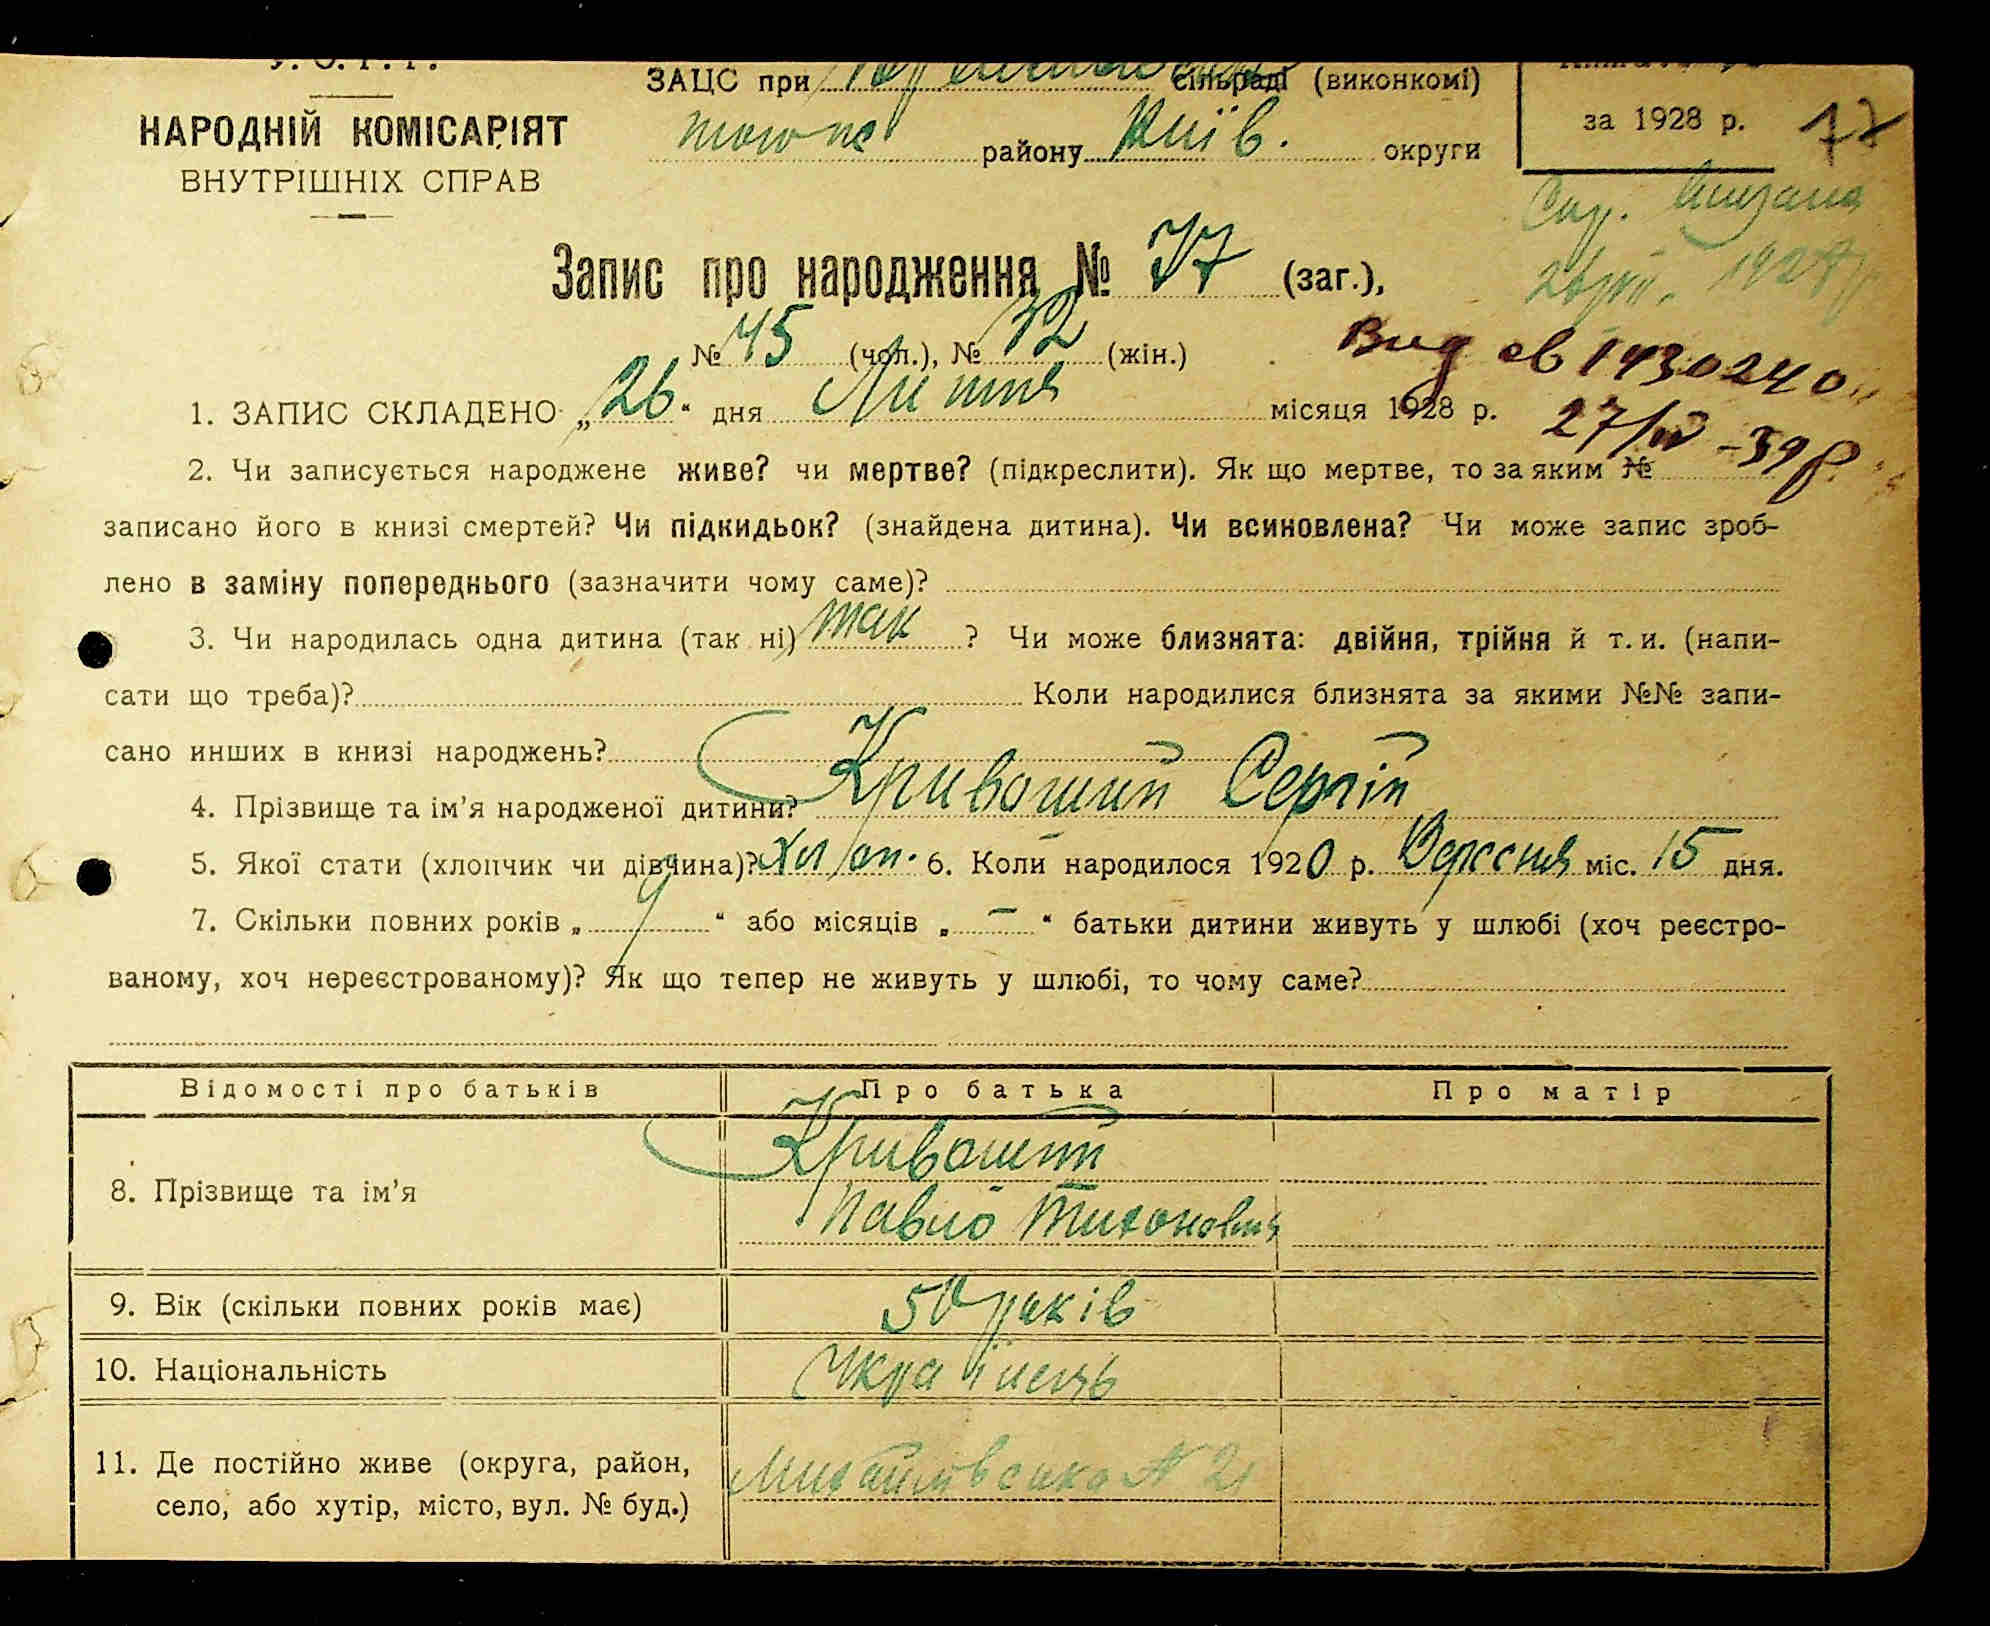 У. С. Р. Р.
НАРОДНІЙ КОМІСАРІЯТ
ВНУТРІШНІХ СПРАВ
ЗАЦС при сільраді (виконкомі)
того ж району Київ. округи
за 1928 р.
17
Запис про народження № 77 (заг.),
№ 45 (чол.), № 32 (жін.)
Вид св 1430240
27/IV -39 р.
1. ЗАПИС СКЛАДЕНО „26“ дня Липня місяця 1928 р.
2. Чи записується народжене живе? чи мертве? (підкреслити). Як що мертве, то за яким №
записано його в книзі смертей? Чи підкидьок? (знайдена дитина). Чи всиновлена? Чи може запис зроб-
лено в заміну попереднього (зазначити чому саме)?
3. Чи народилась одна дитина (так ні) так ? Чи може близнята: двійня, трійня й т. и. (напи-
сати що треба)? Коли народилися близнята за якими №№ запи-
сано инших в книзі народжень?
4. Прізвище та ім'я народженої дитини? Кривоший Сергій
5. Якої стати (хлопчик чи дівчина)? Хлоп. 6. Коли народилося 1920 р. Вересня міс. 15 дня.
7. Скільки повних років „ 9 “ або місяців „ – “ батьки дитини живуть у шлюбі (хоч реєстро-
ваному, хоч нереєстрованому)? Як що тепер не живуть у шлюбі, то чому саме?
Відомості про батьків Про батька Про матір
8. Прізвище та ім'я Кривоший
Павло Тихонович
9. Вік (скільки повних років має) 50 років
10. Національність Українець
11. Де постійно живе (округа, район,
село, або хутір, місто, вул. № буд.) Михайлівська № 21